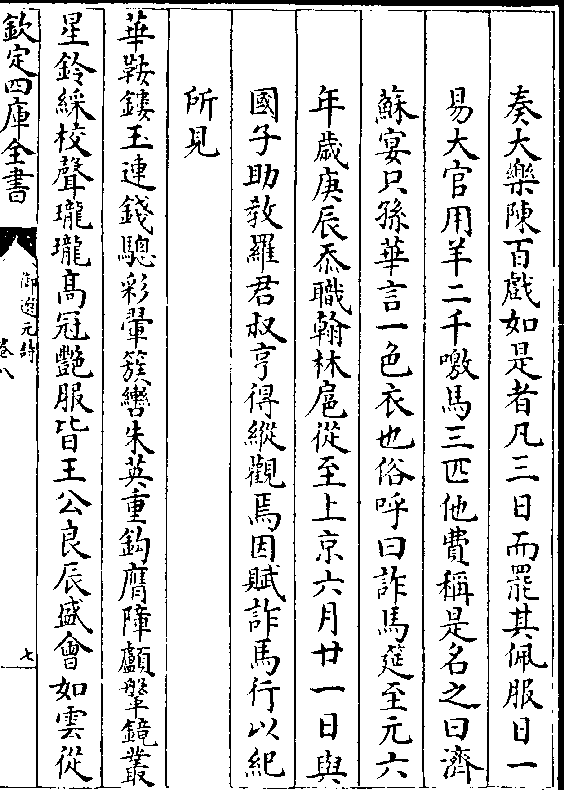 奏大樂陳百戲如是者凡三日而罷其佩服日一
易大官用羊二千嗷馬三匹他費稱是名之曰濟
蘇宴只孫華言一色衣也俗呼曰詐馬筵至元六
年歲庚辰忝職翰林扈從至上京六月廿一日與
國子助教羅君叔亨得縱觀焉因賦詐馬行以紀
所見
華鞍鏤玉連錢驄彩翬簇轡朱英重鈎膺障顱鞶鏡叢
星鈴綵校聲瓏瓏高冠艷服皆王公良辰盛會如雲從
欽定四庫全書
御選元詩
卷八
七